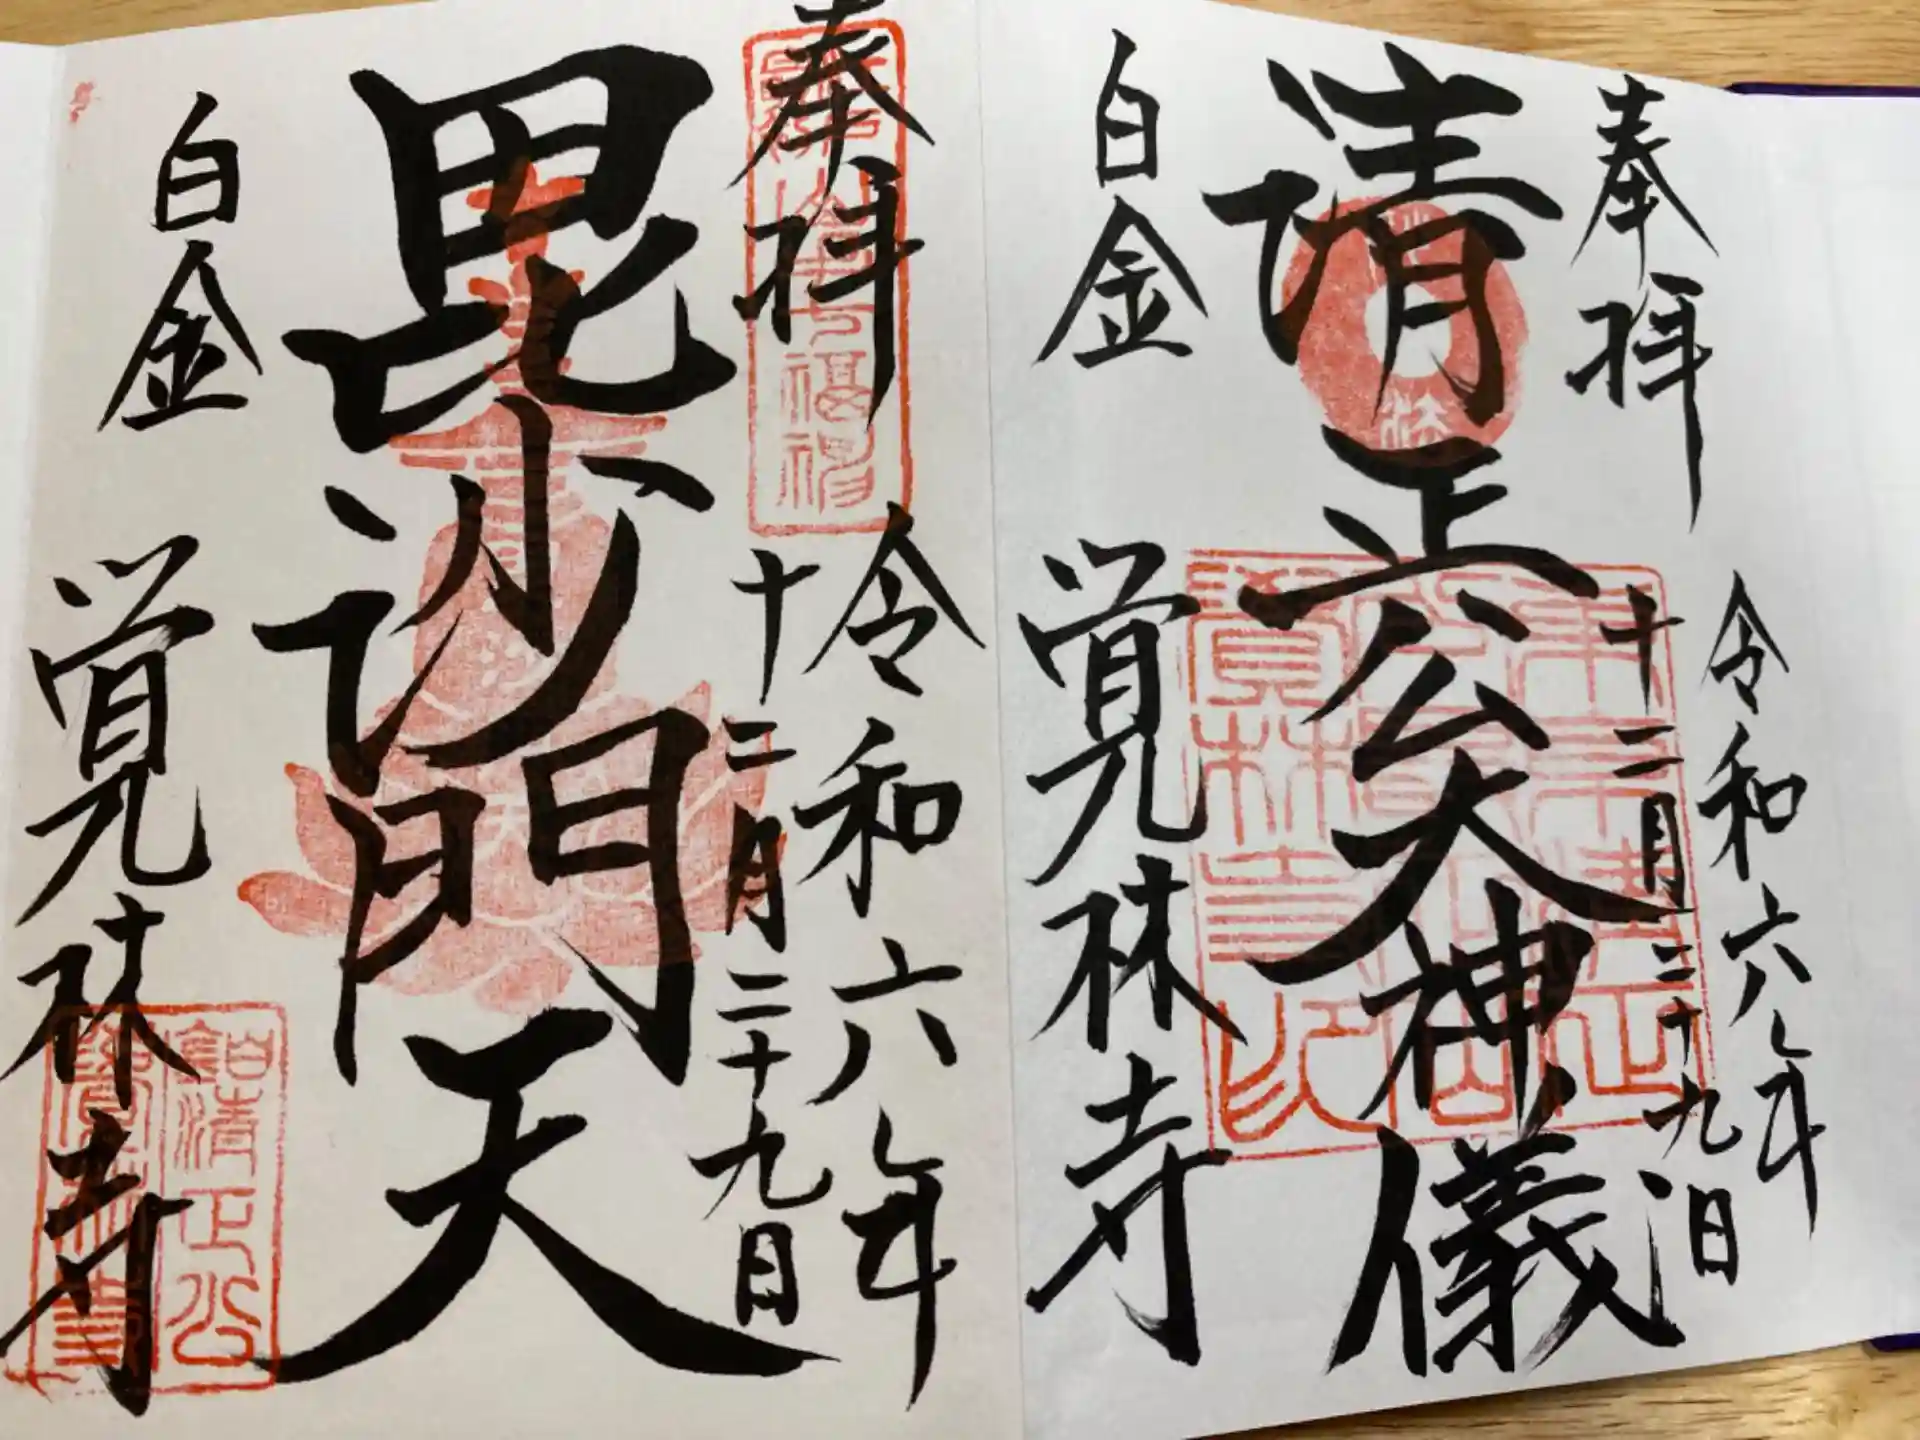 奉拝
令和六年
十二月二十九日
清正公大神儀
白金
覚林寺
奉拝
令和六年
十二月二十九日
毘沙門天
白金
覚林寺
白金清正公
覚林寺